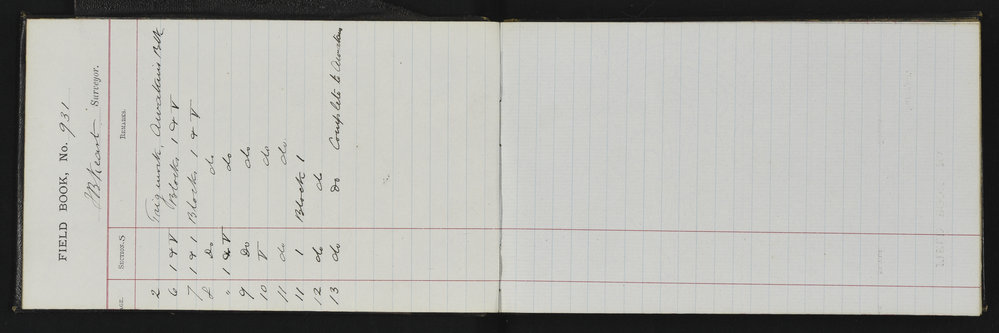 FIELD BOOK, No. 931
Surveyor.
PAGE. SECTION.S REMARKS.
2 Trig work, Awakino Blk
6 1 & V Blocks 1 & V
7 1 & 1 Blocks 1 & V
8 Do do
" 1 & V do
9 Do do
10 V do
11 do do
11 1 Block 1
12 do do
13 do Do Complete to